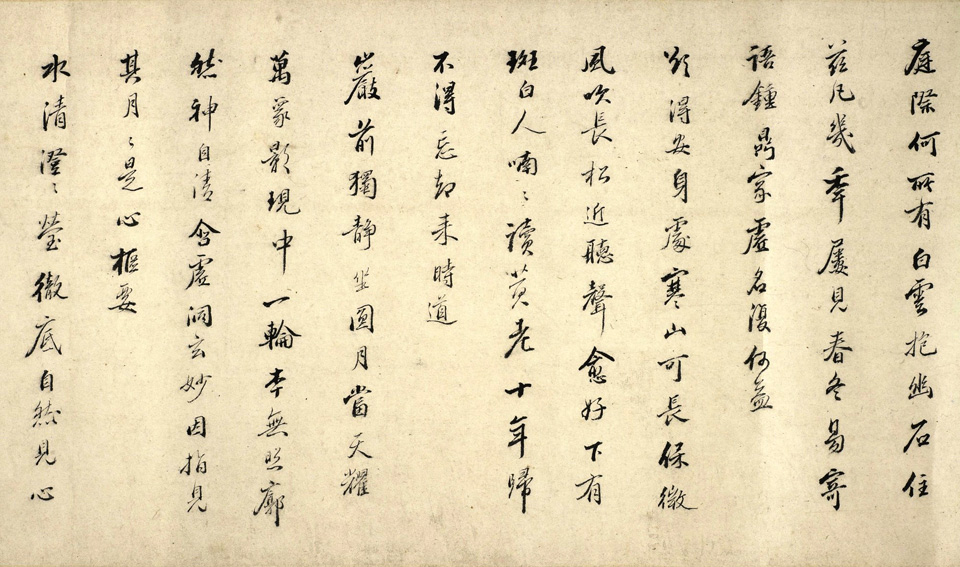 庭際何所有白雲抱幽石住
茲凡幾年屢見春冬易寄
語鍾鼎家虛名復何益
欲得安身處寒山可長保微
風吹長松近聽聲愈好下有
斑白人喃〻讀黃老十年歸
不得忘却来時道
巖前獨靜坐圓月當天耀
萬象影現中一輪本無照廓
然神自清含虛洞玄妙因指見
其月〻是心樞要
水清澄〻瑩徹底自然見心